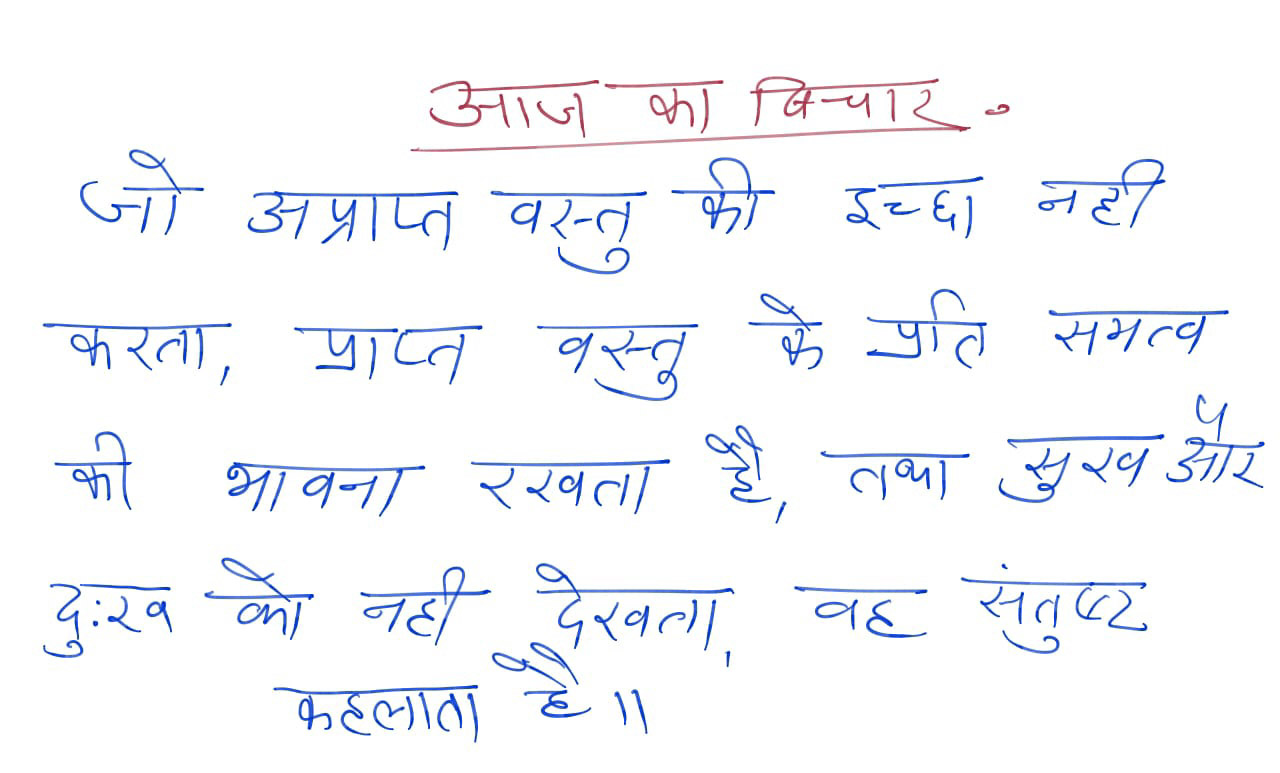 आज का बिचार.
जो अप्राप्त वस्तु की इच्छा नही
करता, प्राप्त वस्तु के प्रति समत्व
की भावना रखता है, तथा सुख और
दुःख को नही देखता, वह संतुष्ट
कहलाता है ॥